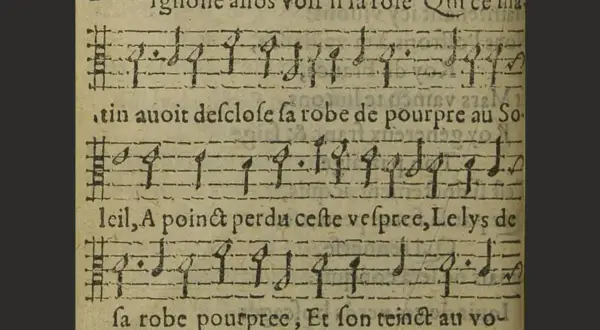 ignonne allos voir si la rose Qui ce ma-
tin auoit desclose sa robe de pourpre au So-
leil, A poinct perdu ceste vespree, Le lys de
sa robe pourpree, Et son teinct au vo-